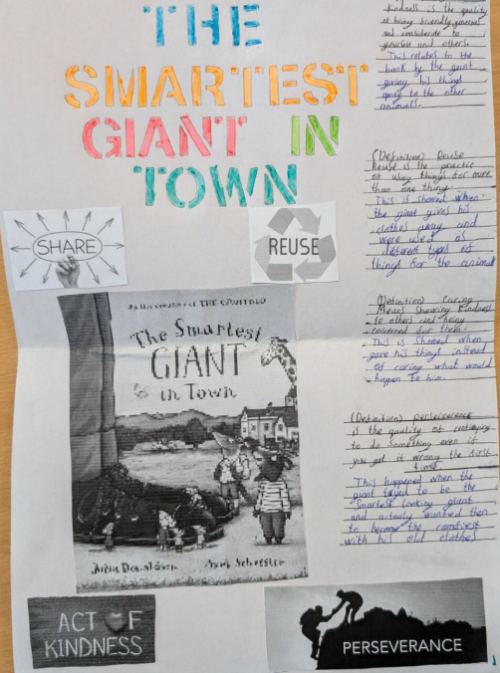 THE
SMARTEST
GIANT IN
TOWN
SHARE
REUSE
BY THE CREATORS OF THE GRUFFALO
The Smartest
GIANT
in Town
Julia Donaldson Axel Scheffler
ACT OF
KINDNESS
PERSEVERANCE
Kindness is the quality
of being friendly, generous
and considerate to
yourself and others.
This relates to the
book by the giant
giving his things
away to the other
animals.
(Definition) Reuse
Reuse is the practice
of using things for more
than one thing.
This is showed when
the giant gives his
clothes away and
were used as
different types of
things for the animals
(Definition) Caring
Means showing kindness
to others and being
concerned for them.
This is showed when
gave his things instead
of caring what would
happen to him.
(Definition) perseverence
is the quality of continuing
to do something even if
you get it wrong the first
time.
This happened when the
giant tryed to be the
smartest looking giant
and actualy wanted then
to become the
with his old clothes